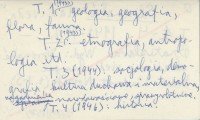 T. 1 (1947): geologia, geografia,
flora, fauna
T. 2: etnografia, antropo-
logia itd.
T. 3 (1948): socjologia, demo-
grafia, kultura duchowa i materialna,
narodowościowe
T. 4 (1948): historia.